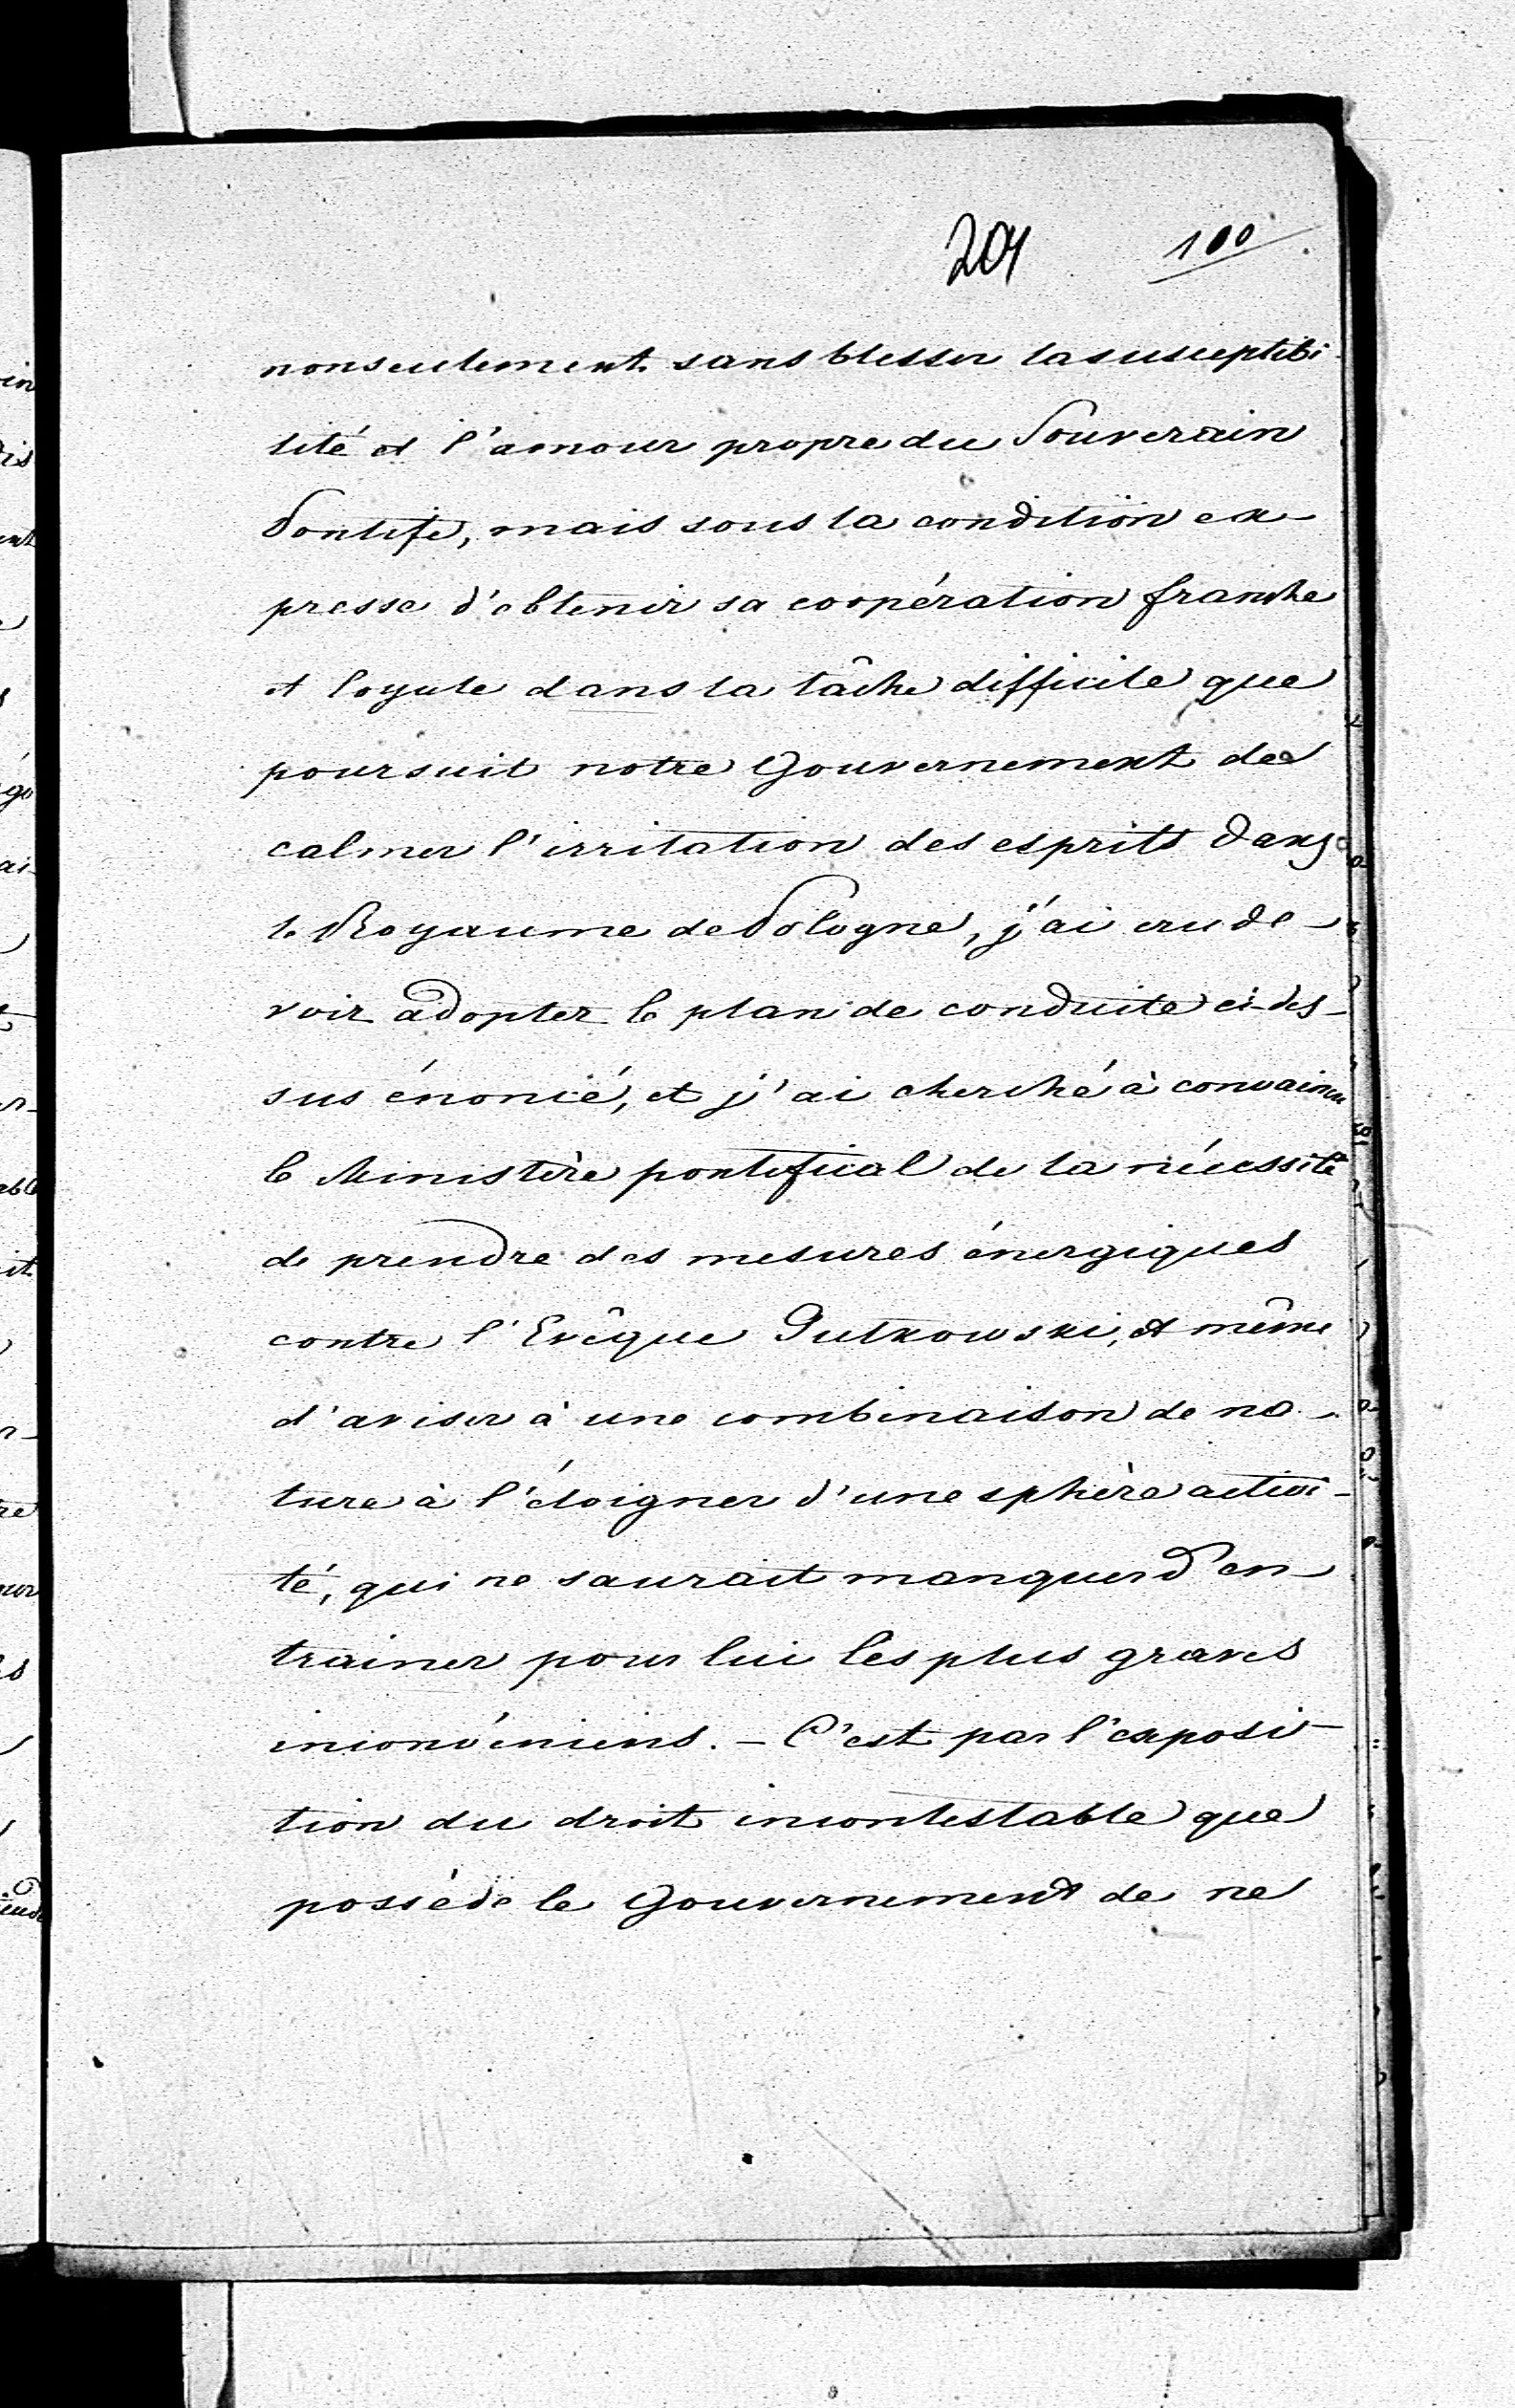 201 100
nonseulement sans blesser la susceptibi-
lité et l'amour propre du Souverain
Pontife, mais sous la condition ex-
presse d'obtenir sa coopération franche
et loyale dans la tâche difficile que
poursuit notre Gouvernement de
calmer l'irritation des esprits dans
le Royaume de Pologne, j'ai cru de-
voir adopter le plan de conduite ci-des-
sus énoncé, et j'ai cherché à convaincre
le Ministère pontifical de la nécessité
de prendre des mesures énergiques
contre l'Evêque Gutkowski, et même
d'aviser à une combinaison de na-
ture à l'éloigner d'une sphère activi-
té, qui ne saurait manquer d'en-
trainer pour lui les plus graves
inconvéniens. - C'est par l'exposi-
tion du droit incontestable que
possède le Gouvernement de ne